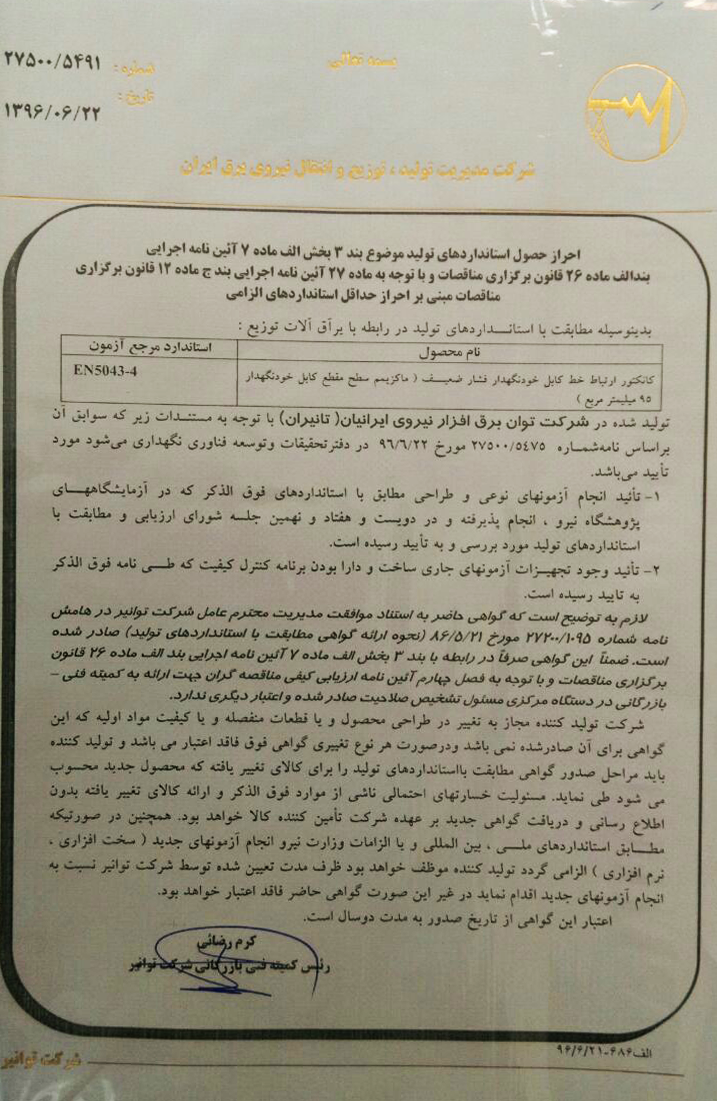 بسمه تعالی
شماره : ۲۷۵۰۰/۵۴۹۱
تاریخ : ۱۳۹۶/۰۶/۲۲
شرکت مدیریت تولید ، توزیع و انتقال نیروی برق ایران
احراز حصول استانداردهای تولید موضوع بند ۳ بخش الف ماده ۷ آئین نامه اجرایی
بندالف ماده ۲۶ قانون برگزاری مناقصات و با توجه به ماده ۲۷ آئین نامه اجرایی بند ج ماده ۱۲ قانون برگزاری
مناقصات مبنی بر احراز حداقل استانداردهای الزامی
بدینوسیله مطابقت با استانـداردهای تولید در رابطه با یراق آلات توزیع :
نام محصول
استاندارد مرجع آزمون
کانکتور ارتباط خط کابل خودنگهدار فشار ضعیـف ( ماکزیمم سطح مقطع کابل خودنگهدار
۹۵ میلیمتر مربع )
EN5043-4
تولید شده در شرکت توان برق افزار نیروی ایرانیان( تانیران) با توجه به مستندات زیر که سوابق آن
براساس نامه‌شماره ۲۷۵۰۰/۵۴۷۵ مورخ ۹۶/۶/۲۲ در دفترتحقیقات وتوسعه فناوری نگهداری می‌شود مورد
تأیید می‌باشد.
۱- تأئید انجام آزمونهای نوعی و طراحی مطابق با استانداردهای فوق الذکر که در آزمایشگاههـای
پژوهشگاه نیرو ، انجام پذیرفته و در دویست و هفتاد و نهمین جلسه شورای ارزیابی و مطابقت با
استانداردهای تولید مورد بررسی و به تأیید رسیده است.
۲- تأئید وجود تجهیـزات آزمونهای جاری ساخت و دارا بودن برنامه کنترل کیفیت که طـی نامه فوق الذکر
به تایید رسیده است.
لازم به توضیح است که گواهی حاضر به استناد موافقت مدیریت محترم عامل شرکت توانیر در هامش
نامه شماره ۲۷۲۰۰/۱۰۹۵ مورخ ۸۶/۵/۲۱ (نحوه ارائه گواهی مطابقت با استانداردهای تولید) صادر شده
است. ضمناً این گواهی صرفاً در رابطه با بند ۳ بخش الف ماده ۷ آئین نامه اجرایی بند الف ماده ۲۶ قانون
برگزاری مناقصات و با توجه به فصل چهارم آئین نامه ارزیابی کیفی مناقصه گران جهت ارائه به کمیته فنی –
بازرگانی در دستگاه مرکزی مسئول تشخیص صلاحیت صادر شده و اعتبار دیگری ندارد.
شرکت تولید کننده مجاز به تغییر در طراحی محصول و یا قطعات منفصله و یا کیفیت مواد اولیه که این
گواهی برای آن صادرشده نمی باشد ودرصورت هر نوع تغییری گواهی فوق فاقد اعتبار می باشد و تولید کننده
باید مراحل صدور گواهی مطابقت بااستانداردهای تولید را برای کالای تغییر یافته که محصول جدید محسوب
می شود طی نماید. مسئولیت خسارتهای احتمالی ناشی از موارد فوق الذکر و ارائه کالای تغییر یافته بدون
اطلاع رسانی و دریافت گواهی جدید بر عهده شرکت تأمین کننده کالا خواهد بود. همچنین در صورتیکه
مطـابق استانداردهای ملـی ، بین المللی و یا الزامات وزارت نیرو انجام آزمونهای جدید ( سخت افزاری ،
نرم افزاری ) الزامی گردد تولید کننده موظف خواهد بود ظرف مدت تعیین شده توسط شرکت توانیر نسبت به
انجام آزمونهای جدید اقدام نماید در غیر این صورت گواهی حاضر فاقد اعتبار خواهد بود.
اعتبار این گواهی از تاریخ صدور به مدت دوسال است.
کرم رضائی
رئیس کمیته فنی بازرگانی شرکت توانیر
الف۶۸۶-۹۶/۶/۲۱
شرکت توانیر